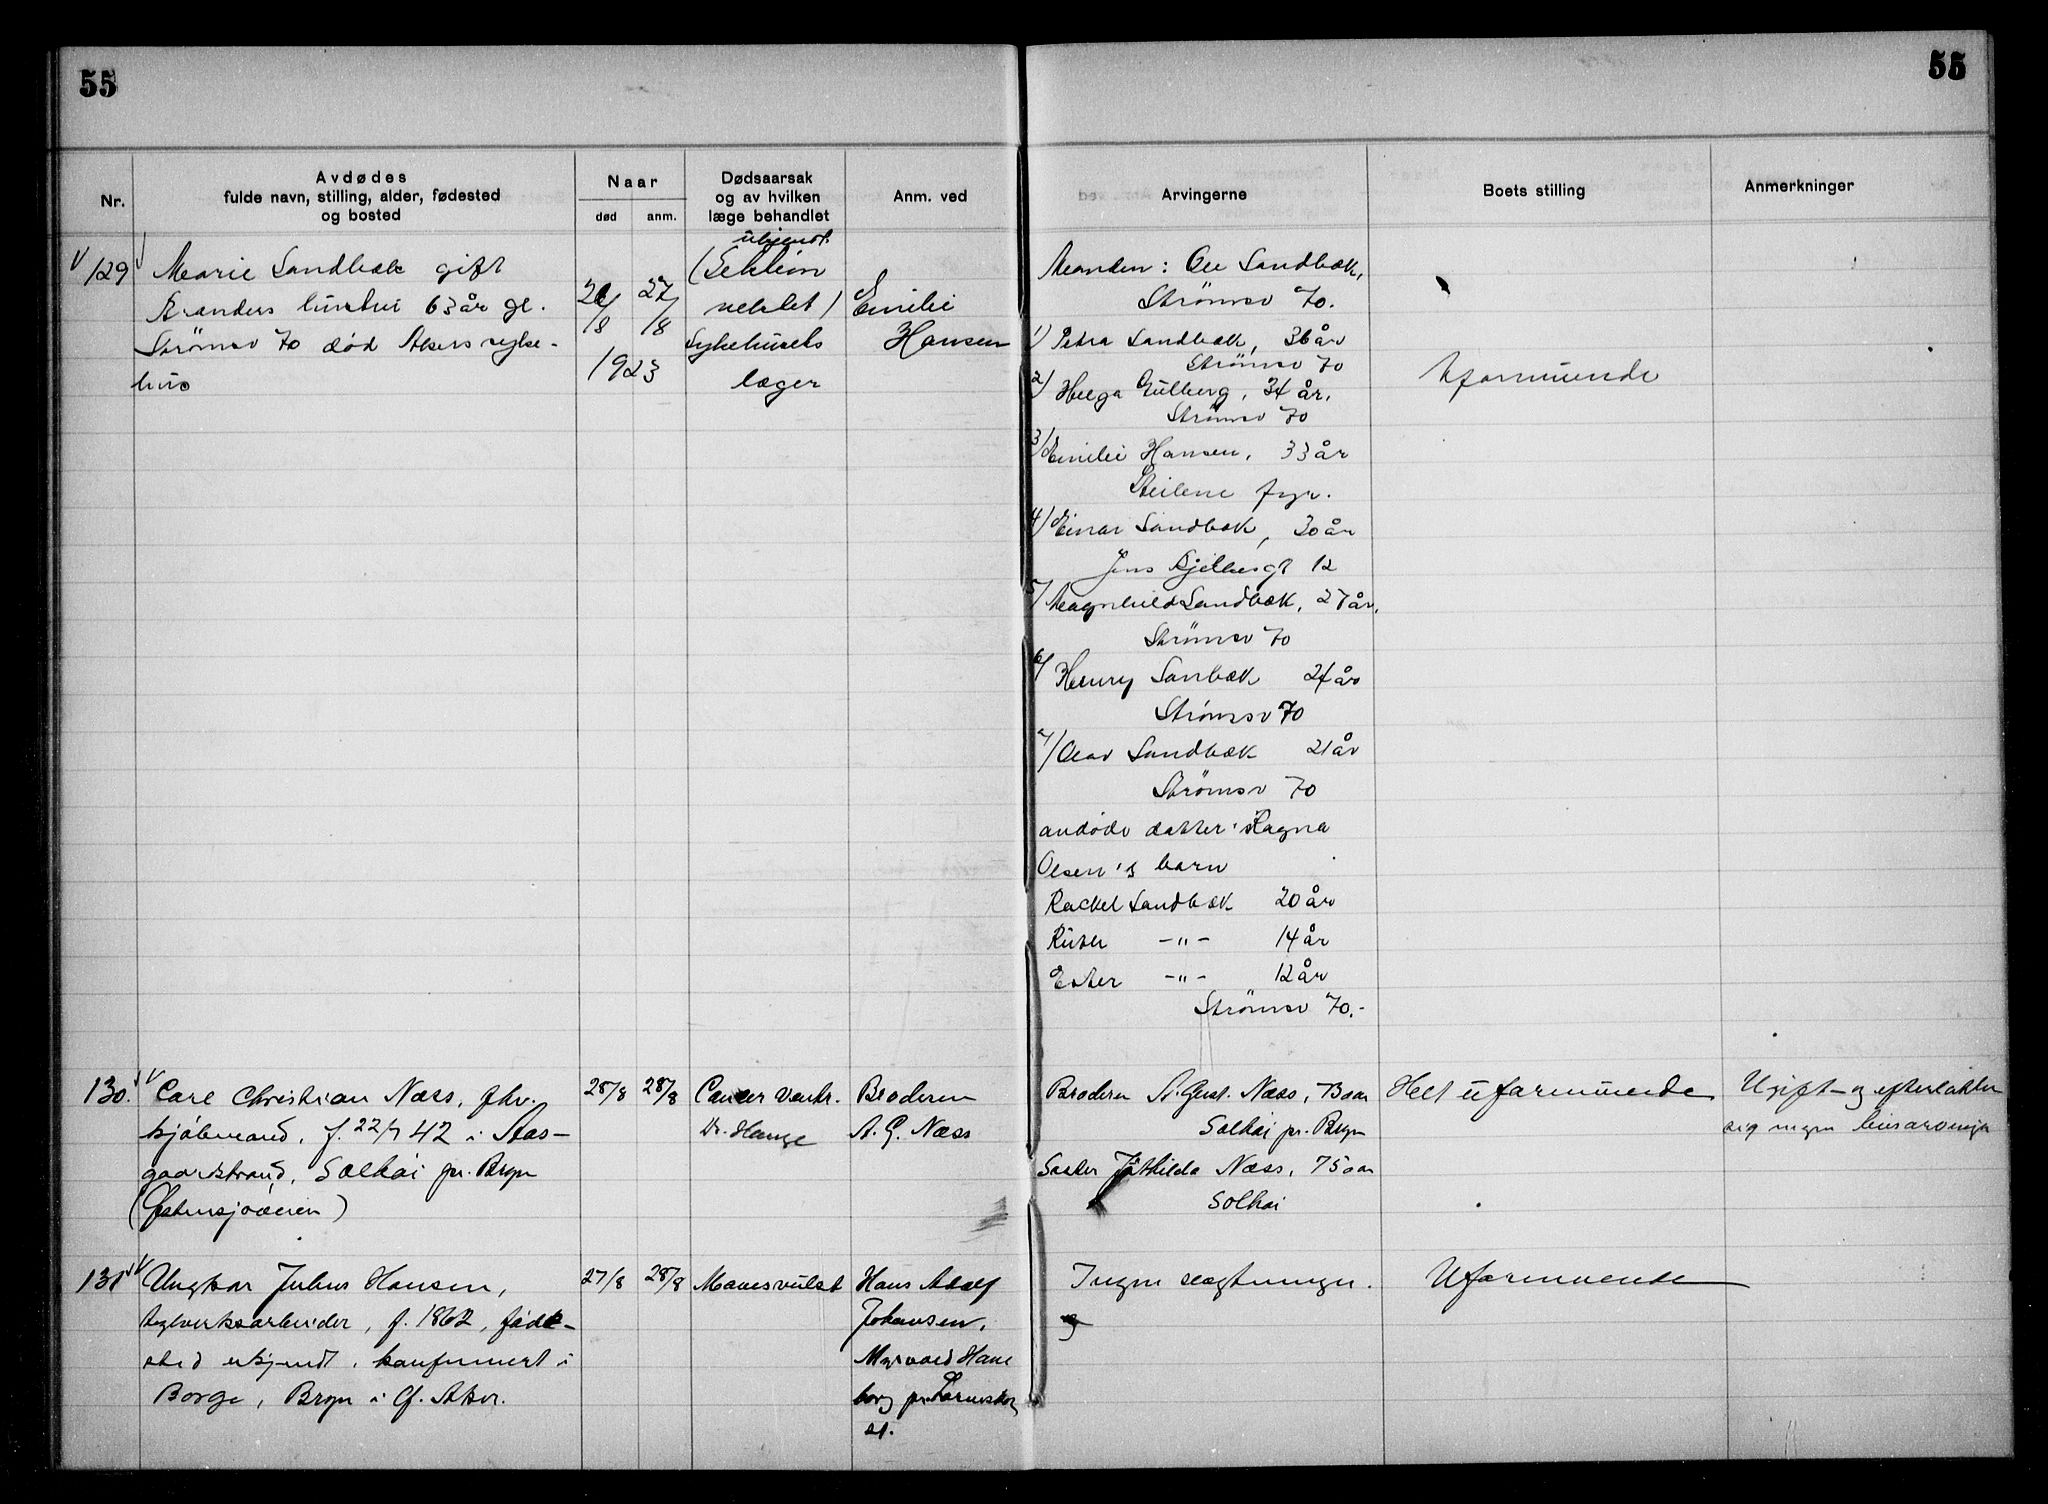 55
55
Nr.
Avdødes
fulde navn, stilling, alder, fødested
og bosted
Naar
død
anm.
Dødsaarsak
og av hvilken
læge behandlet
Anm. ved
Arvingerne
Boets stilling
Anmerkninger
129
Marie Sandbæk gift
hustru 63 år gl.
Strömsv 70 død Akers syke-
hus
27/8
1923
ukjendt
(Sektion
nektet)
Sykehusets
læger
Emilie
Hansen
Manden: Ole Sandbæk,
Strömsv 70.
1) Petra Sandbæk, 36 år
Strömsv 70
2) Helga Gulberg, 34 år.
Strömsv 70
3) Emilie Hansen, 33 år
Steilene fyr.
4) Einar Sandbæk, 30 år
Jens Bjelkesgt 12
5) Magnhild Sandbæk, 27 år.
Strömsv 70
6) Henry Sanbæk 24 år
Strömsv 70
7) Olav Sandbæk 21 år
Strömsv 70
avdøde datter Ragna
Olsen's barn
Rackel Sandbæk 20 år
Ruth -"- 14 år
Ester -"- 12 år
Strömsv 70.-
Uformuende
130.
Carl Christian Næss, fhv.
kjøbmand, f. 22/7 42 i Aas-
gaardstrand, Solhøi pr. Bryn
(Østensjøveien)
28/8
28/8
Cancer ventr.
Dr. Hauge
Broderen
A. G. Næss
Broderen A. Gust. Næss, 73 aar
Solhøi pr. Bryn
Søster Mathilda Næss, 75 aar
Solhøi
Helt uformuende
Ugift og efterlater
sig ingen livsarvinger
131
Ungkar Julius Hansen,
teglverksarbeider, f. 1862, føde-
sted ukjendt, konfirmert i
Borge, Bryn i Ø. Aker.
27/8
28/8
Mavesvulst
Hans Adolf
Johansen,
Myrvold Hane
borg pr. Lørenskog
st.
Ingen slægtninger.
Uformuende